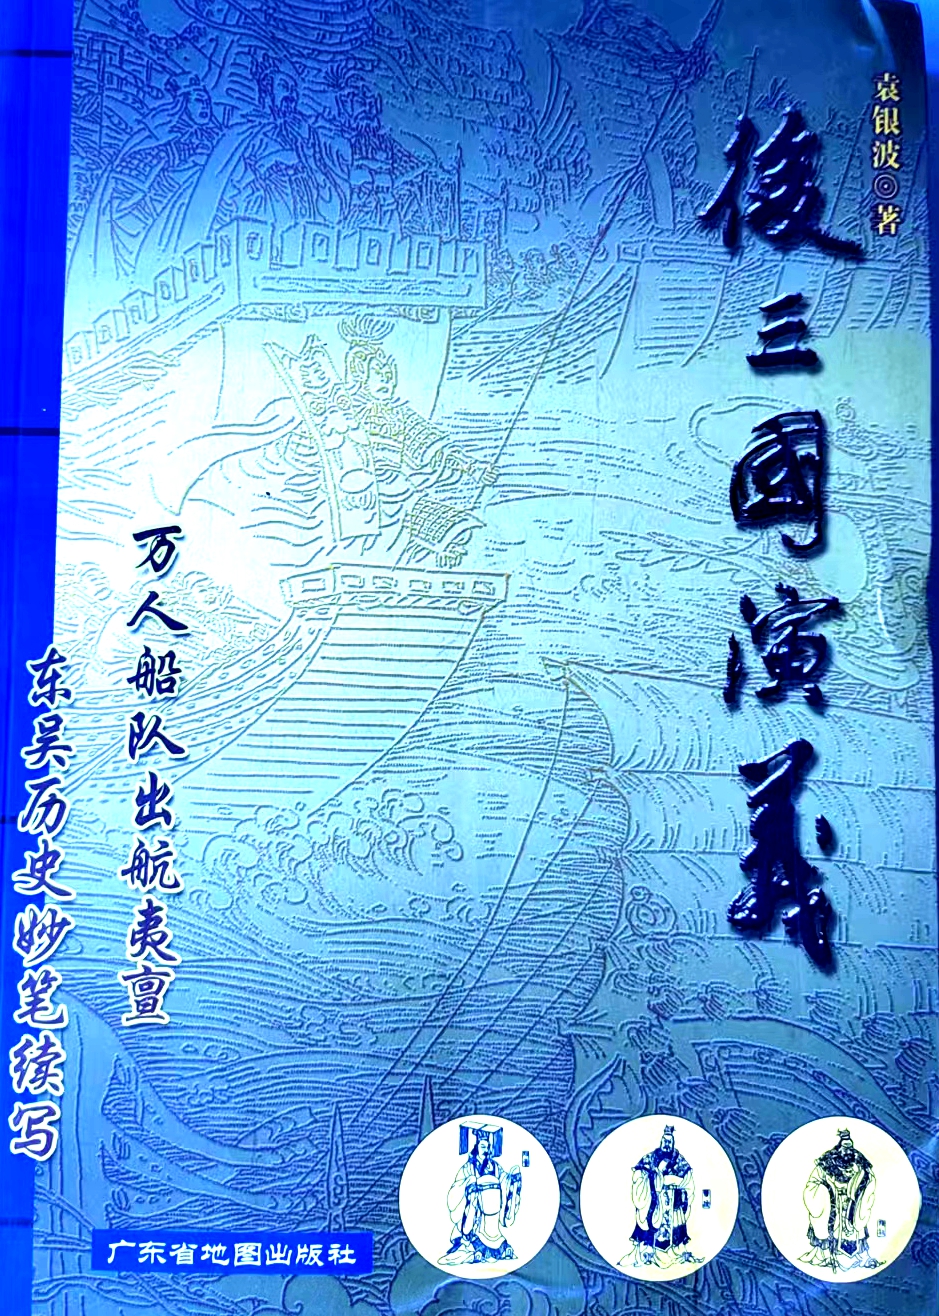 袁银波◎著
後三國演義
万人船队出航夷亶
东吴历史妙笔续写
广东省地图出版社